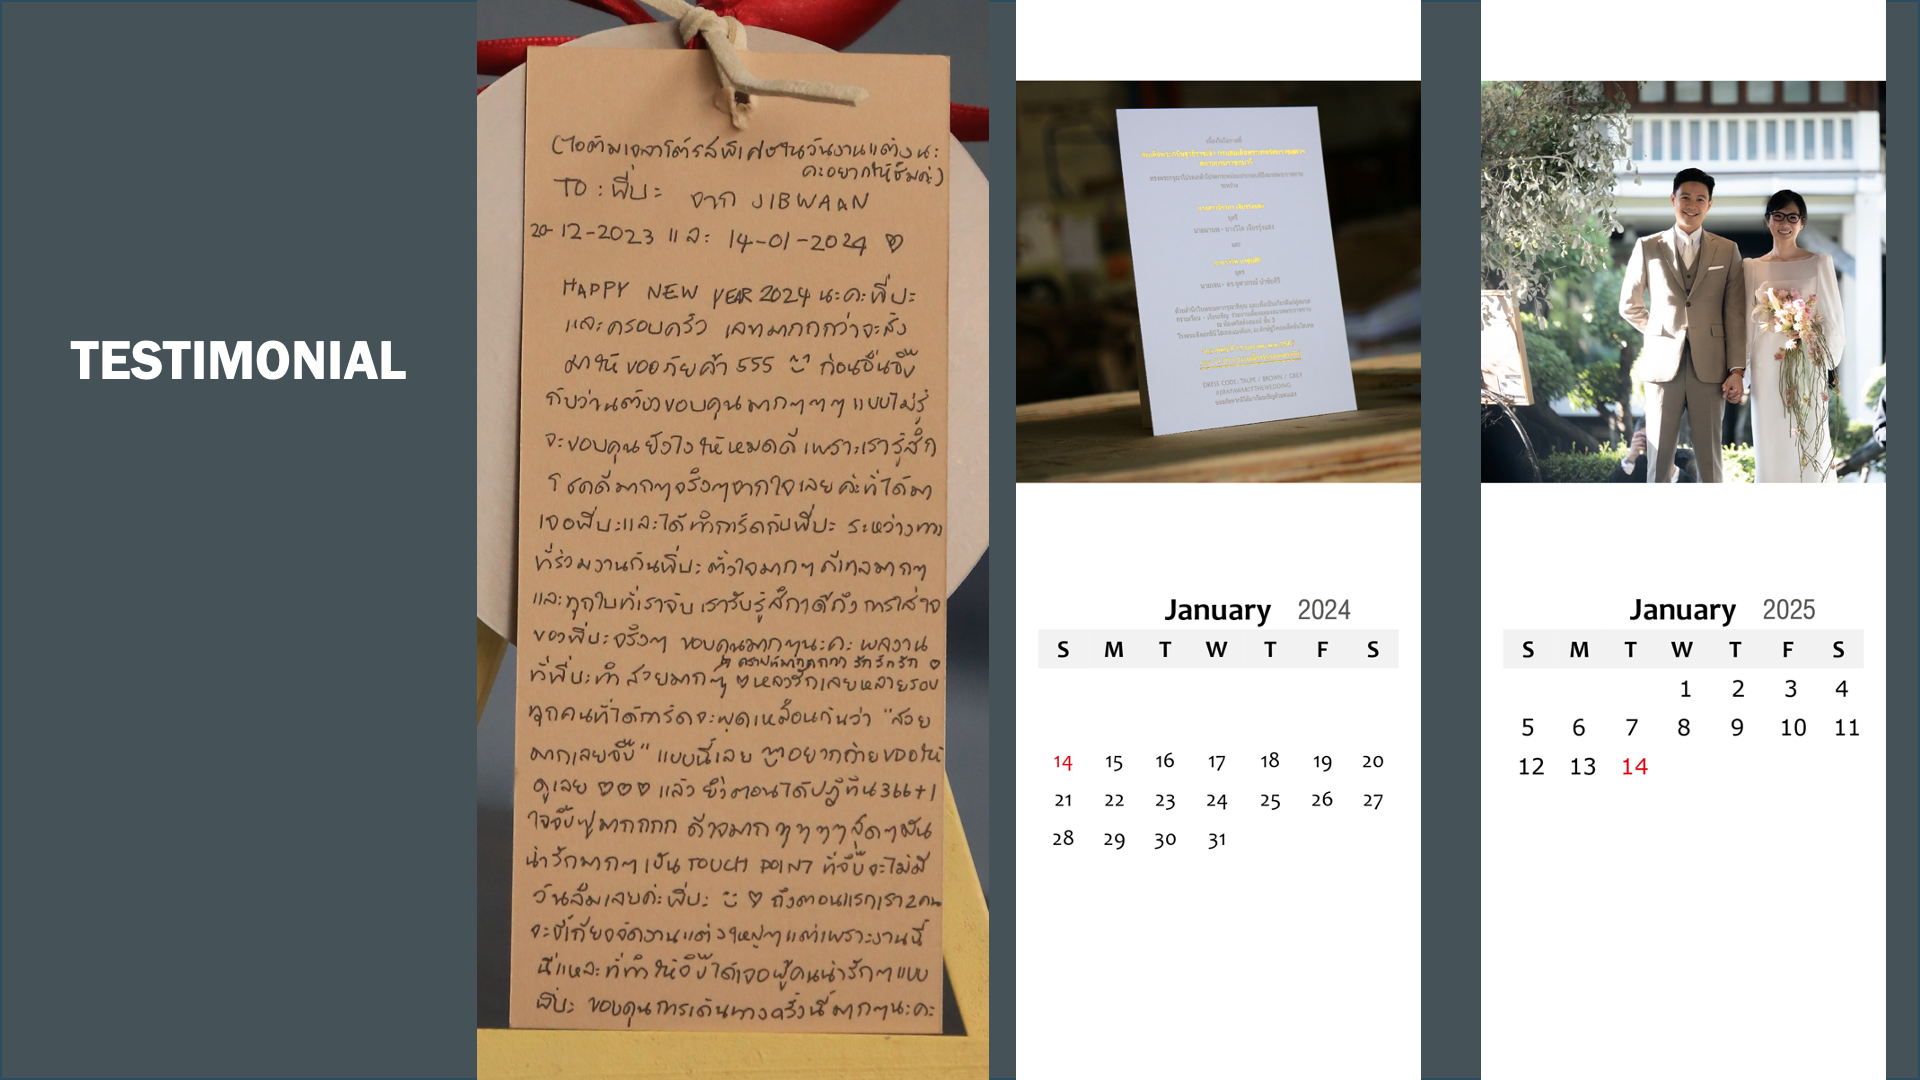 TESTIMONIAL
(ไอติมเจลาโต้รสพิเศษในวันงานแต่งนะ
คะอยากให้ชิมค่ะ)
TO : พี่ปะ จาก JIBWAAN
20-12-2023 และ 14-01-2024 ♡
HAPPY NEW YEAR 2024 นะคะพี่ปะ
และครอบครัว เลทมากกกว่าจะส่ง
มาให้ ขออภัยค่า 555 ก่อนอื่นจิ๊บ
กับว่านต้องขอบคุณมากๆๆๆ แบบไม่รู้
จะขอบคุณยังไงให้หมดดี เพราะเรารู้สึก
โชคดีมากๆจริงๆจากใจเลยค่ะที่ได้มา
เจอพี่ปะและได้ทำการ์ดกับพี่ปะ ระหว่างทาง
ที่ร่วมงานกันพี่ปะตั้งใจมากๆ ดีเทลมากๆ
และทุกใบที่เราจับ เรารับรู้สึกได้ถึงการใส่ใจ
ของพี่ปะจริงๆ ขอบคุณมากๆนะคะ ผลงาน
รักรักรัก ♡
ที่พี่ปะทำสวยมากๆ ♡ หลงรักเลยหลายรอบ
ทุกคนที่ได้การ์ดจะพูดเหมือนกันว่า "สวย
มากเลยจิ๊บ" แบบนี้เลย อยากถ่ายขอให้
ดูเลย ♡♡♡ แล้วยิ่งตอนได้ปฏิทิน 366+1
ใจจิ๊บฟูมากกกก ดีใจมากๆๆๆๆสุดๆมัน
น่ารักมากๆ เป็น TOUCH POINT ที่จิ๊บจะไม่มี
วันลืมเลยค่ะพี่ปะ ♡ ถึงตอนแรกเรา2คน
จะขี้เกียจจัดงานแต่งใหญ่ๆแต่เพราะงานนี้
นี่แหละที่ทำให้จิ๊บได้เจอผู้คนน่ารักๆแบบ
พี่ปะ ขอบคุณการเดินทางครั้งนี้มากๆนะคะ
และ
บุตร
DRESS CODE: TAUPE / BROWN / GREY
January 2024
S M T W T F S
14 15 16 17 18 19 20
21 22 23 24 25 26 27
28 29 30 31
January 2025
S M T W T F S
1 2 3 4
5 6 7 8 9 10 11
12 13 14